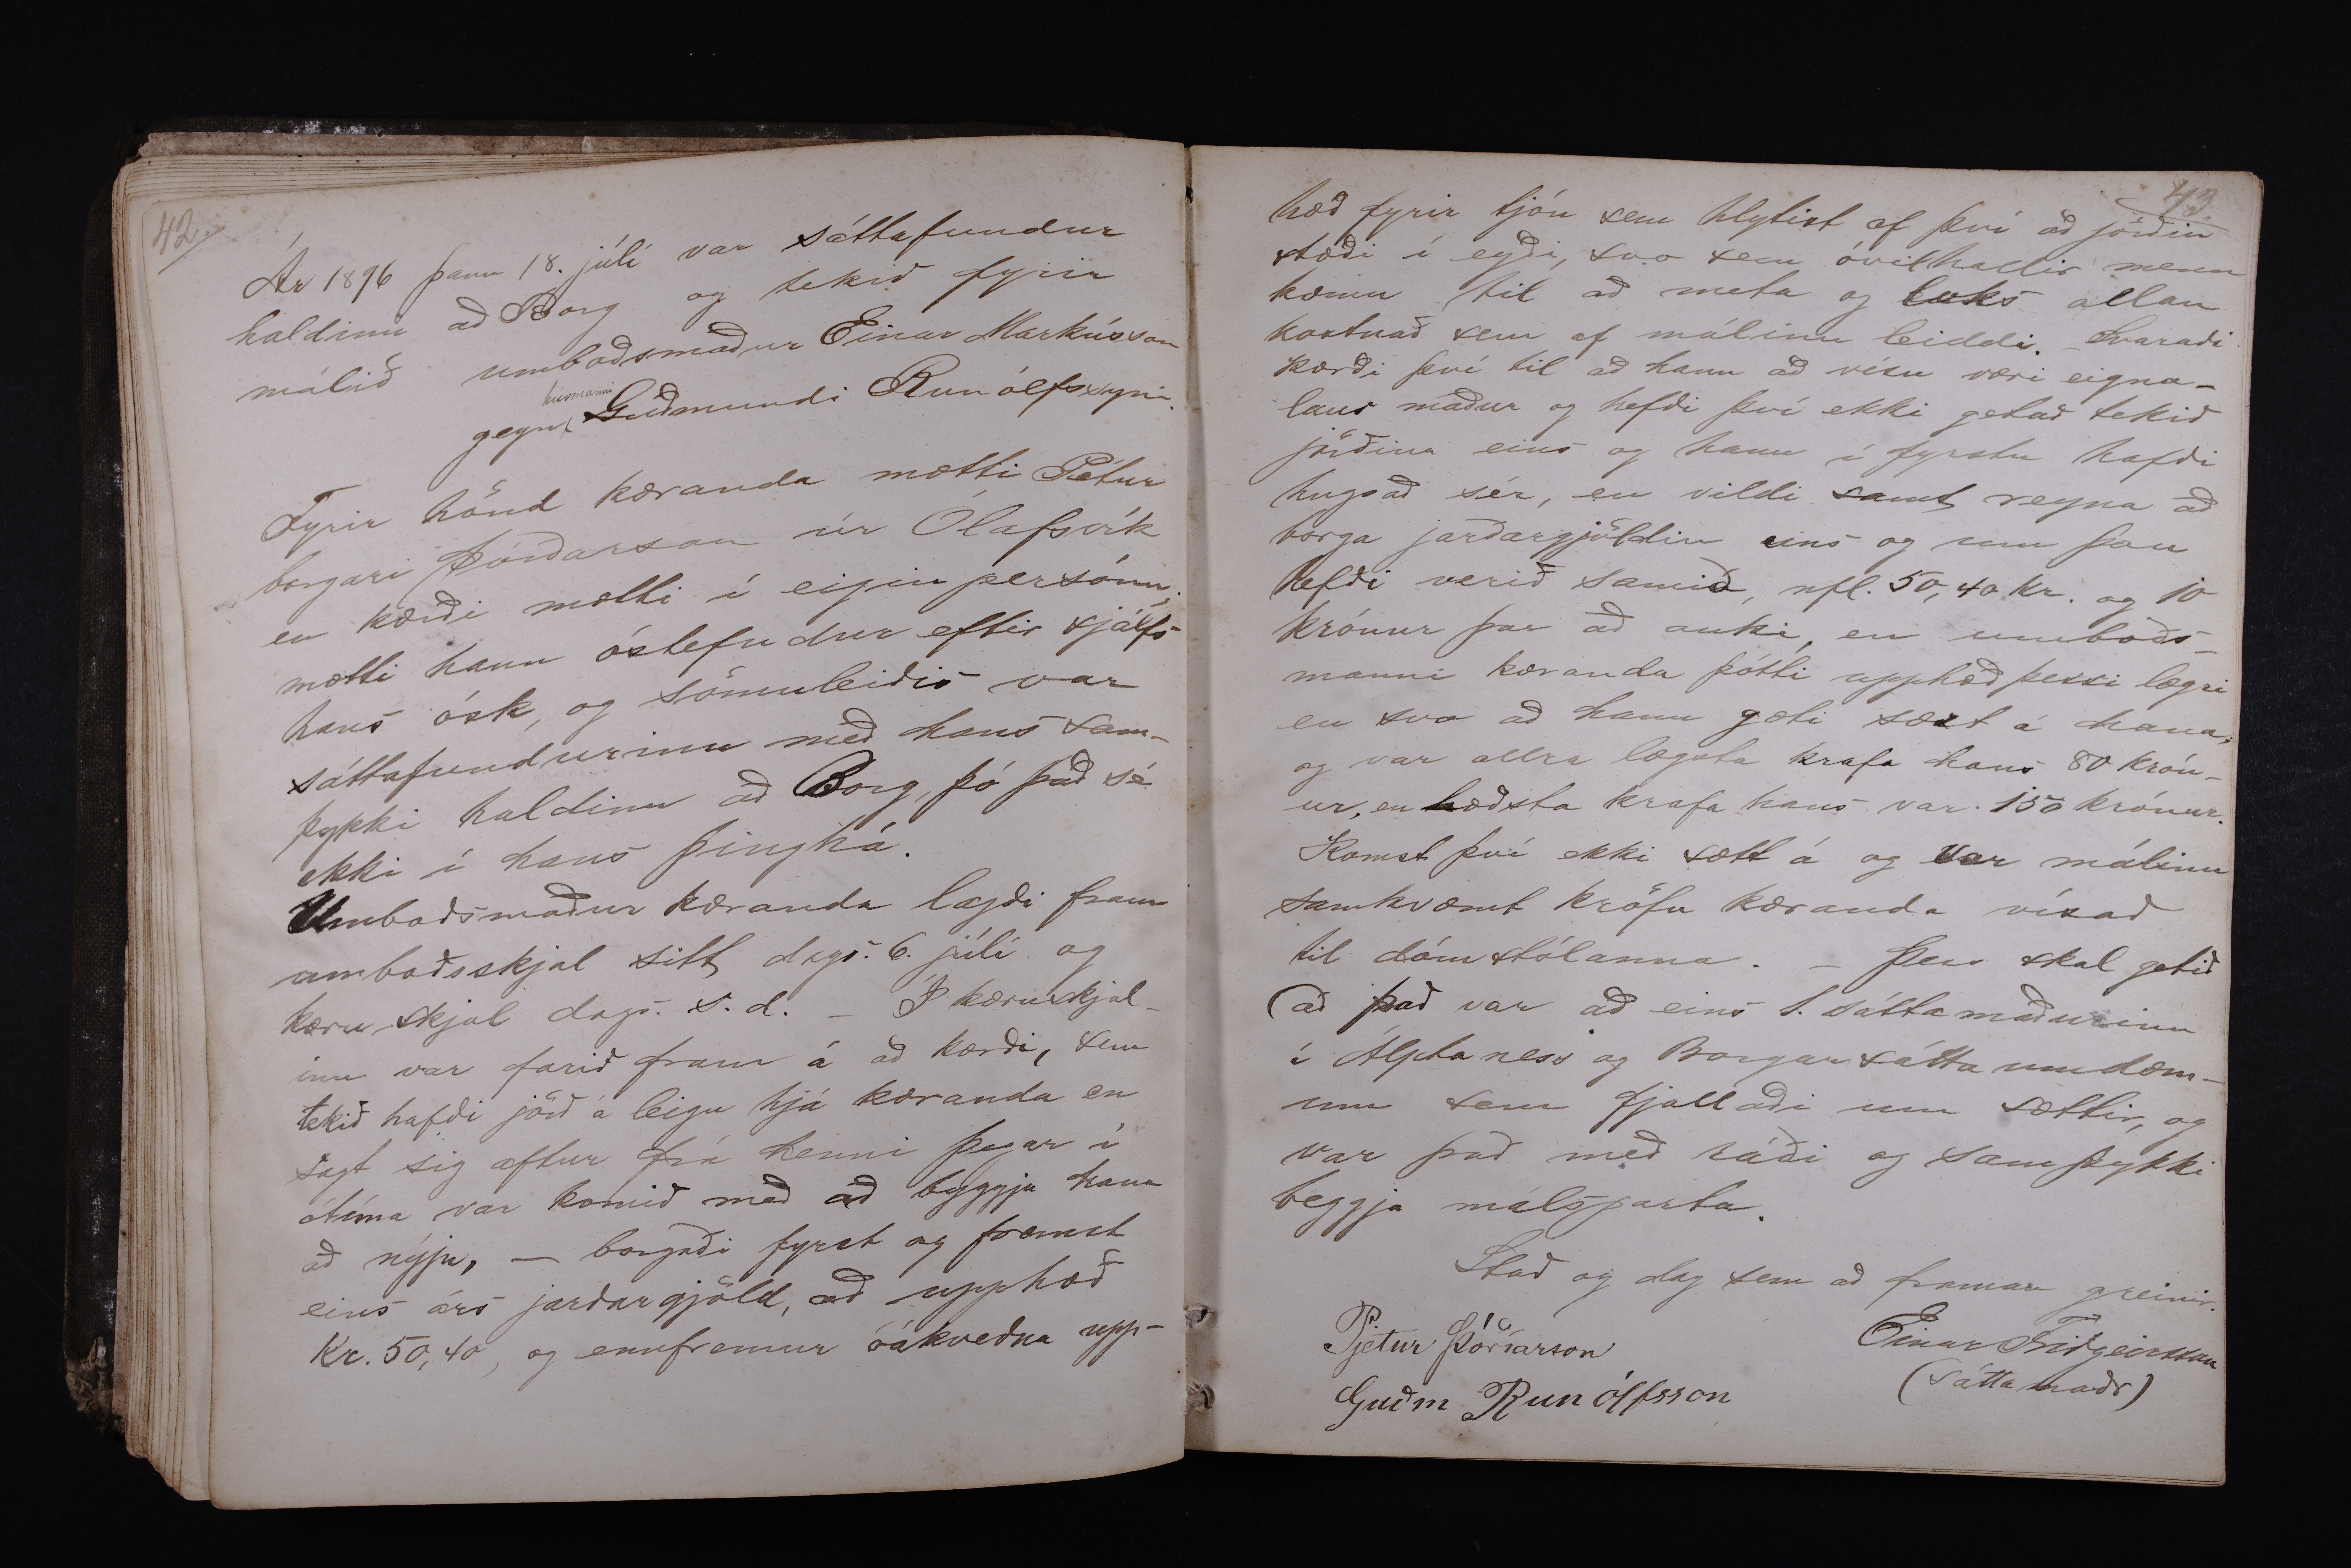 42.
Ár 1896 þann 18. júlí var sáttafundur
haldinn að Borg og tekið fyrir
málið umboðsmaður Einar Markússon
húsmanni
gegn Guðmundi Runólfssyni.
Fyrir hönd kæranda mætti Pétur
borgari Þórðarson úr Ólafsvík
en kærði mætti í eigin persónu;
mætti hann óstefndur eftir sjálfs
hans ósk, og sömuleiðis var
sáttafundurinn með hans sam-
þykki haldinn að Borg, þó það sé
ekki í hans þinghá.
Umboðsmaður kæranda lagði fram
umboðsskjal sitt dags. 6. júlí og
kæru skjal dags. s. d. – Í kæruskjal-
inu var farið fram á að kærði, sem
tekið hafði jörð á leigu hjá kæranda en
sagt sig aftur frá henni þegar í
ótíma var komið með að byggja hana
að nýju, – borgaði fyrst og fremst
eins árs jarðargjöld, að upphæð
Kr. 50,40, og ennfremur óákveðna upp-
43.
hæð fyrir tjón sem hlytist af því að jörðin
stæði í eyði, svo sem óvilhallir menn
kæmu til að meta og loks allan
kostnað sem af málinu leiddi. – Svaraði
kærði því til að hann að vísu væri eigna-
laus maður og hefði því ekki getað tekið
jörðina eins og hann í fyrstu hafði
hugsað sér, en vildi samt reyna að
borga jarðargjöldin eins og um þau
hefði verið samið, nfl. 50,40 kr. og 10
krónur þar að auki, en umboðs-
manni kæranda þótti upphæð þessi lægri
en svo að hann gæti sæzt á hana,
og var allra lægsta krafa hans 80 krón-
ur, en hæðsta krafa hans var 150 krónur.
Komst því ekki sætt á og var málinu
samkvæmt kröfu kæranda vísað
til dómstólanna. – Þess skal getið
að það var að eins 1. sáttamaðurinn
í Álptaness og Borgar sáttaumdæm-
um sem fjallaði um sættir, og
var það með ráði og samþykki
beggja málsparta.
Stað og dag sem að framan greinir.
Pjetur Þórðarson
Einar Friðgeirsson
Guðm Runólfsson
(sáttamaðr)